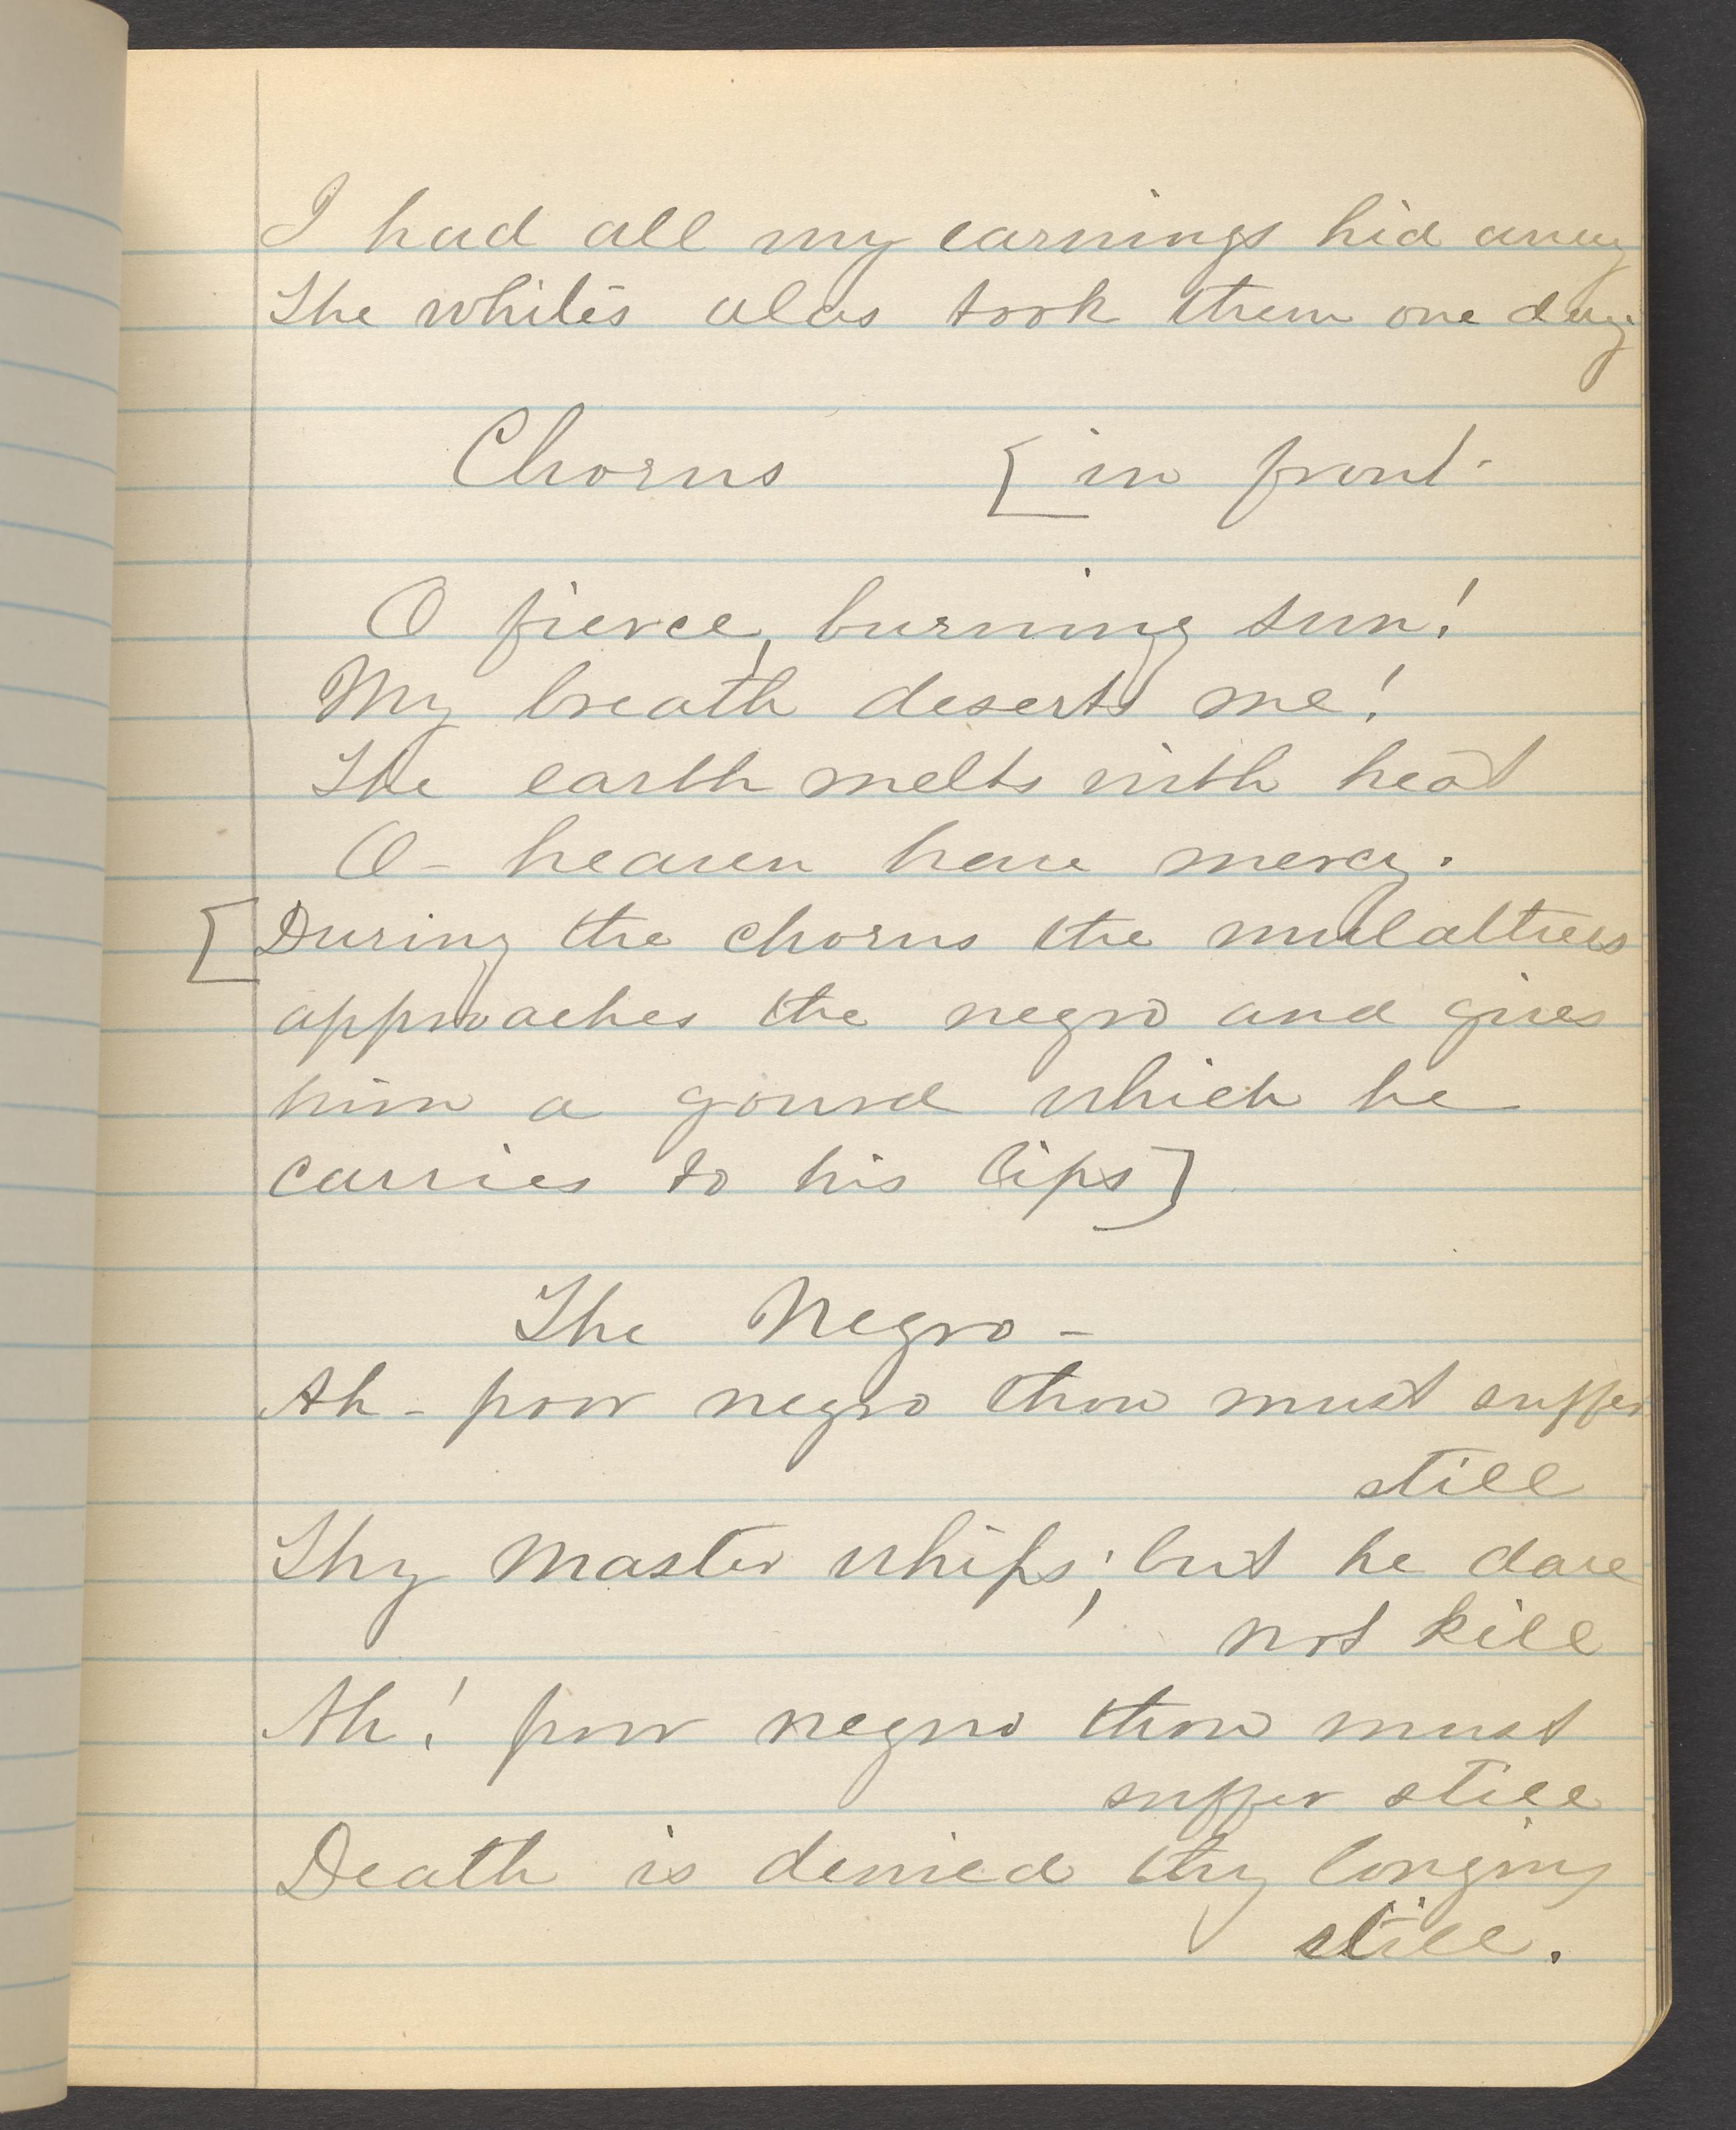 I had all my earnings hid away
The whites alas took them one day.
Chorus [in front-
O fierce, burning sun!
My breath deserts me!
The earth melts with heat
O- heaven have mercy.
[During the chorus the mulattress
approaches the negro and gives
him a gourd which he
carries to his lips]
The Negro-
Ah- poor negro thou must suffer
still
Thy Master whips; but he dare
not kill
Ah! poor negro thou must
suffer still
Death is denied thy longing
still.